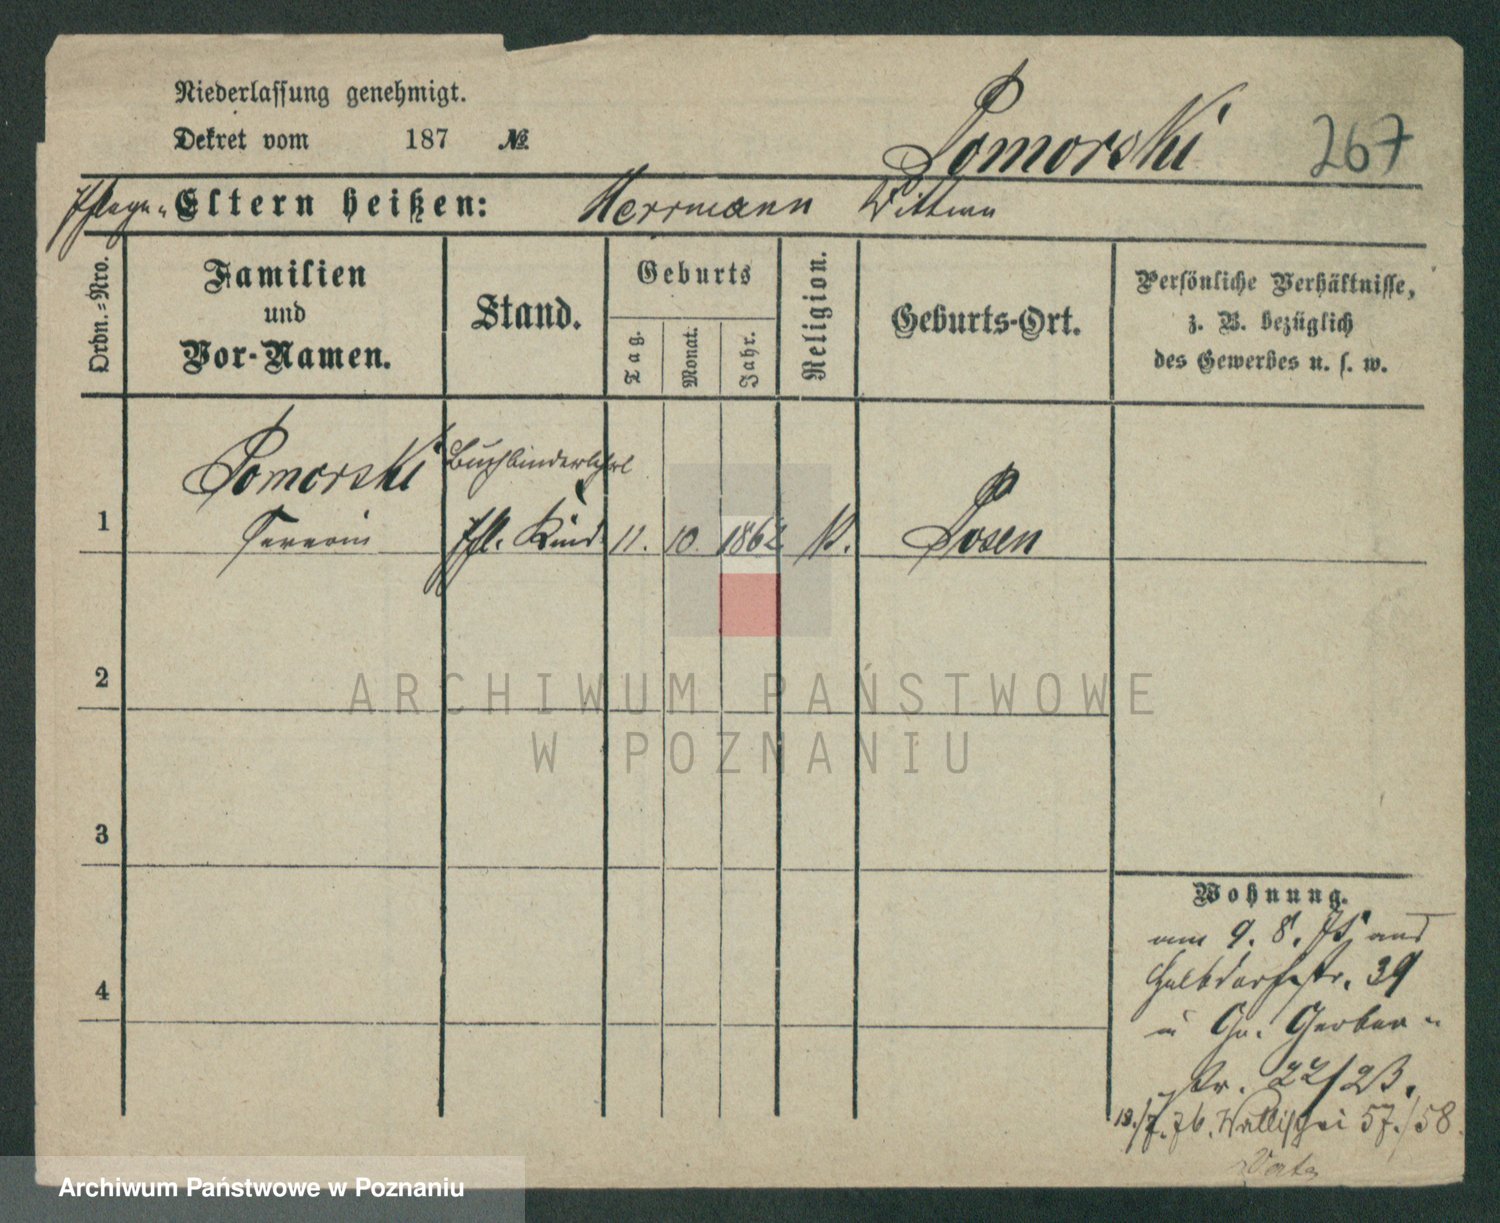 Niederlassung genehmigt.
Dekret vom 187 №
Pomorski 267
Pflege- Eltern heißen: Herrmann Wittwe
Ordn.-Nro.
Familien
und
Vor-Namen.
Stand.
Geburts
Tag.
Monat.
Jahr.
Religion.
Geburts-Ort.
Persönliche Verhältnisse,
z. B. bezüglich
des Gewerbes u. s. w.
Pomorski Buchbinderlehrl
1 Severin Pfl. Kind 11. 10. 1862 K. Posen
2
3
4
Wohnung.
am 9. 8. 75 aus
Halbdorfstr. 39
n Gr. Gerber-
str. 22/23.
19./7. 76. Wallischei 57./58.
ARCHIWUM PAŃSTWOWE
W POZNANIU
Archiwum Państwowe w Poznaniu